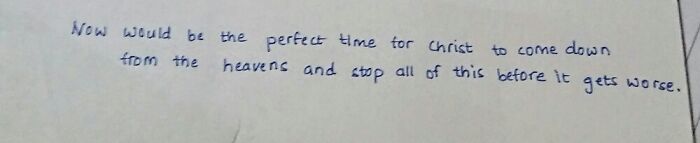 Now would be the perfect time for Christ to come down
from the heavens and stop all of this before it gets worse.